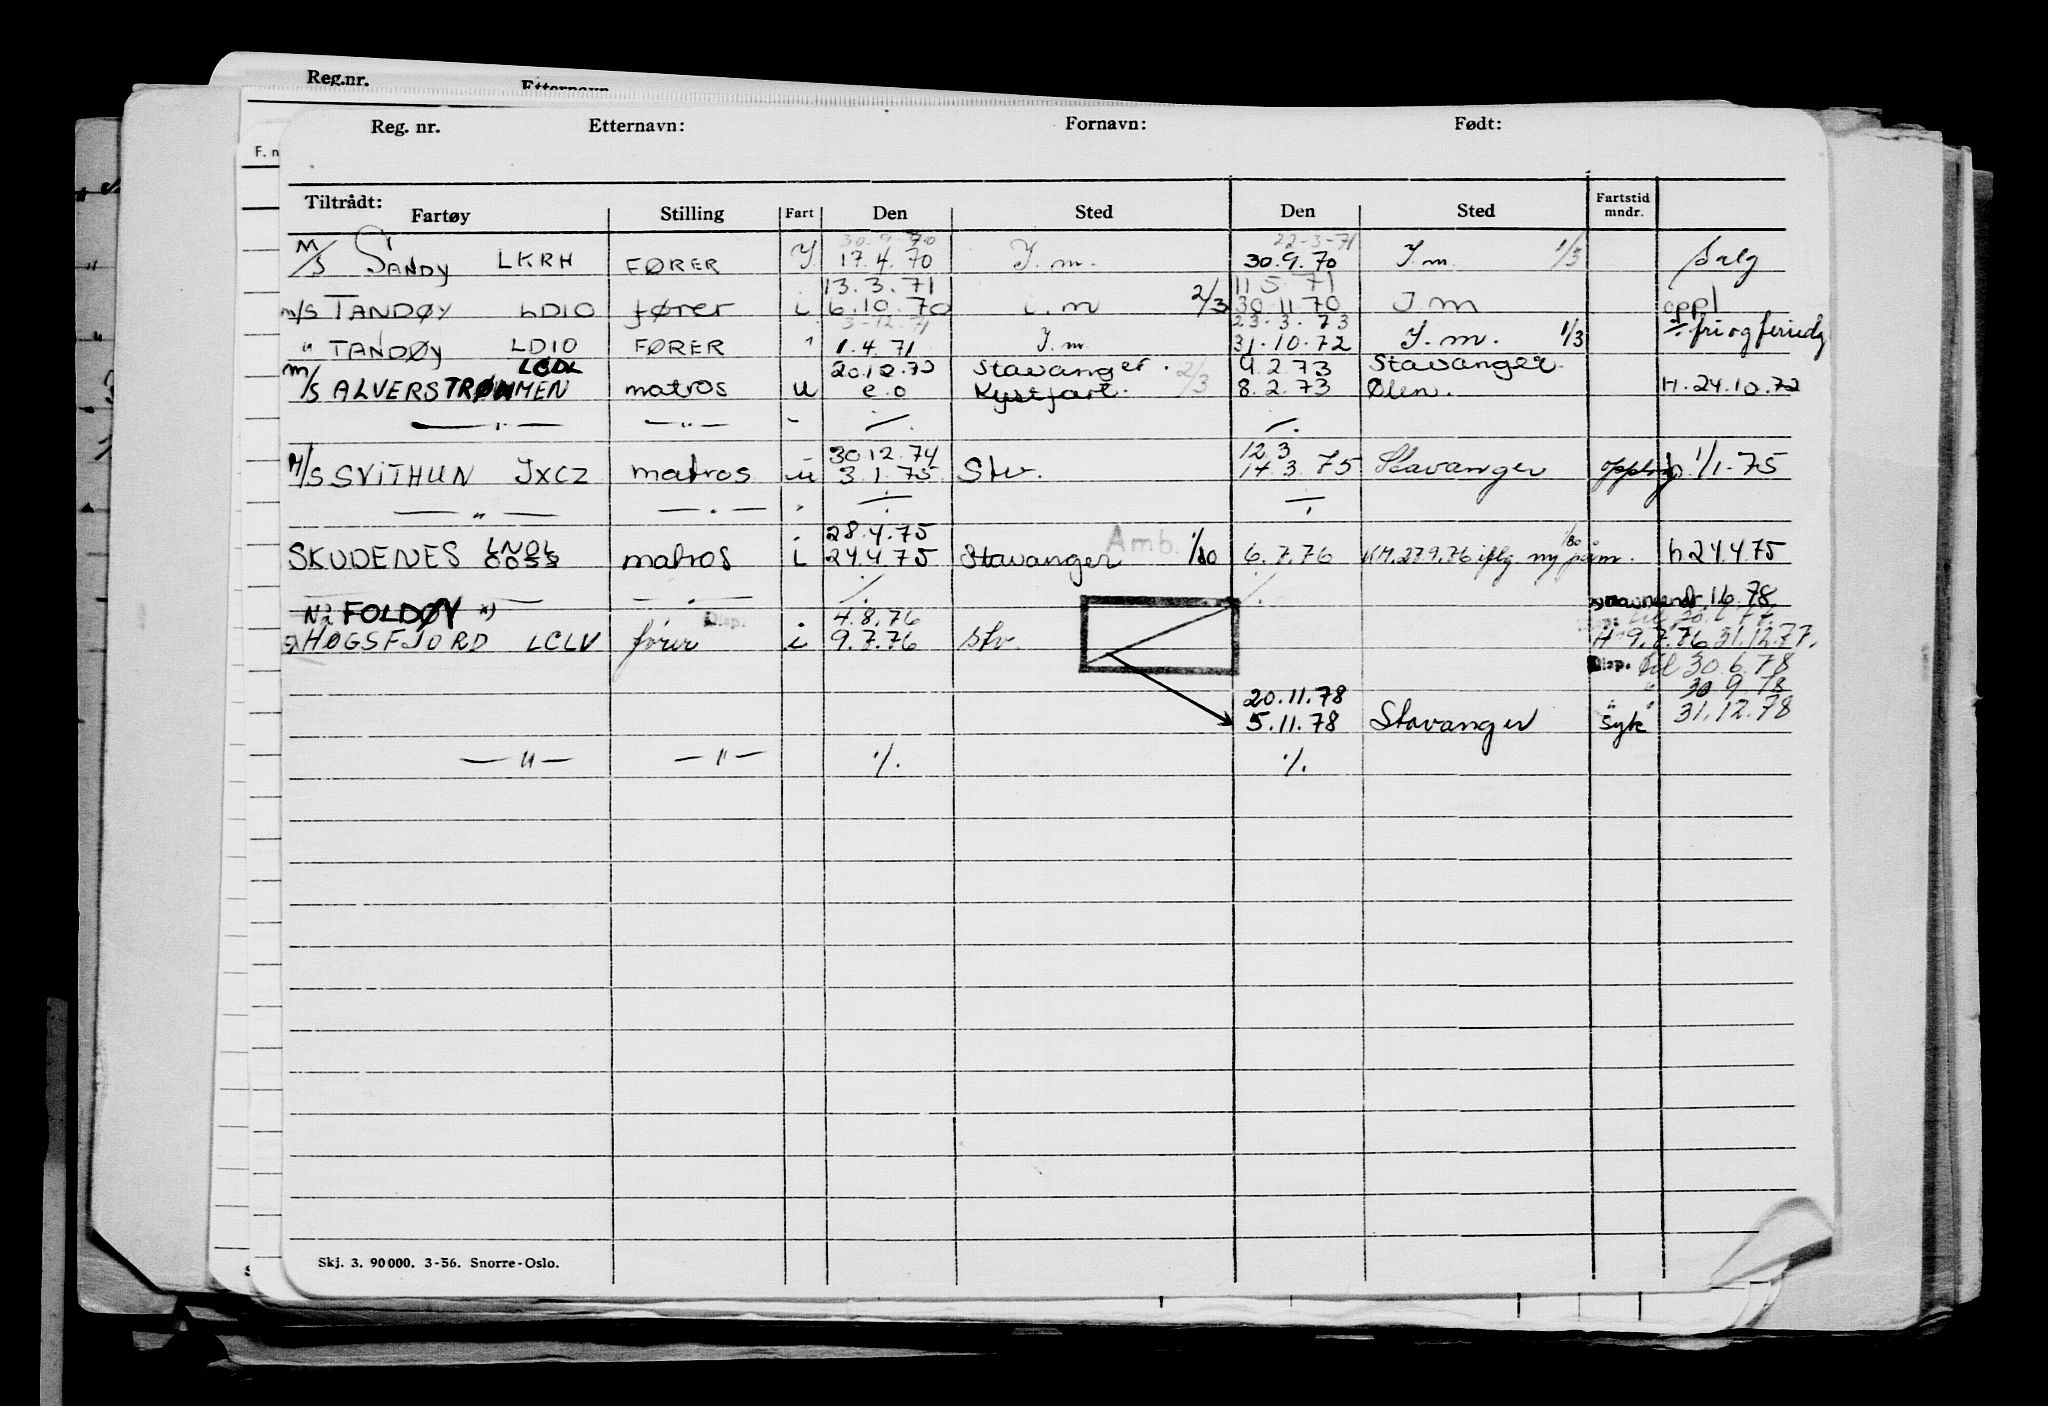 Reg.nr. Etternavn
Reg. nr. Etternavn: Fornavn: Født:
F. n
Tiltrådt: Fartøy Stilling Fart Den Sted Den Sted Fartstid mndr.
30.9.70 22-3-71
M/S SANDY LKRH FØRER I. 17.4.70 I.m. 30.9.70 I.m. 1/3 Salg
13.3.71 11 5 71
m/S TANDØY LDIO fører i 6.10.70 i.m 2/3 30 11 70 I m oppl
3-12.71 23.3.73
" TANDØY LDIO FØRER " 1.4.71 I.m 31.10.72 I.m. 1/3 fri og feriedg
LCDL 20.10.72 Stavanger. 4.2 73 Stavanger.
m/S ALVERSTRØMMEN matros u e.o Kystfart. 2/3 8.2.73 Ølen. H.24.10.72
— " — — " — - ./. ./.
30.12.74 12.3
M/S SVITHUN JXCZ matros u 3.1.75 Stv. 17.3.75 Stavanger opplag h. 1/1-75
— " — — " — ./. ./.
28.4.75 Amb. 1/80
SKUDENES LNOL matros i 24.4.75 Stavanger 1/80 6.7.76 KM.27.9.76 iflg. ny perm. h 24.4.75
— — — . — ./. ./.
Nå FOLDØY x) Disp. 4.8.76 x) navneendr. 1.6.78
HØGSFJORD LCLV fører i 9.7.76 Stv. H 9.7.76 31.12.77.
Disp. til 30.6.78
" 30 9.78
20.11.78 " " 31.12.78
5.11.78 Stavanger Syk
— " — — " — ./. ./.
Skj. 3. 90 000. 3-56. Snorre-Oslo.